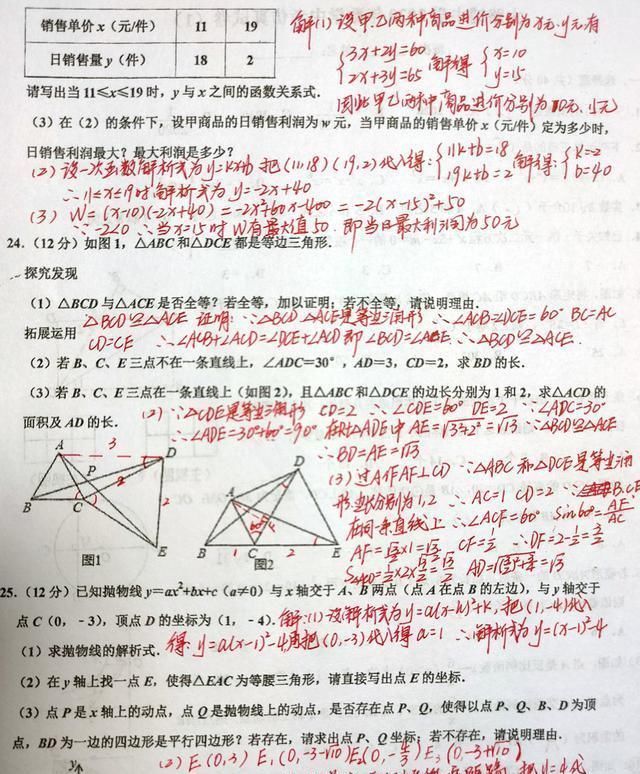 销售单价 x（元/件） 11 19
日销售量 y（件） 18 2
解(1)设甲乙两种商品进价分别为x元,y元有
{3x+2y=60 2x+3y=65 解得 {x=10 y=15
因此甲乙两种商品进价分别为10元、15元
请写出当 11≤x≤19 时，y 与 x 之间的函数关系式.
（3）在（2）的条件下，设甲商品的日销售利润为 w 元，当甲商品的销售单价 x（元/件）定为多少时，
日销售利润最大？最大利润是多少？
(2)设一次函数解析式为y=kx+b 把(11,18)(19,2)代入得:{11k+b=18 19k+b=2 解得:{k=-2 b=40
∴11≤x≤19时解析式为y=-2x+40
(3) W=(x-10)(-2x+40)=-2x²+60x-400=-2(x-15)²+50
∵-2<0 ∴当x=15时W有最大值50. 即当日最大利润为50元
24.（12 分）如图 1，△ABC 和△DCE 都是等边三角形.
探究发现
（1）△BCD 与△ACE 是否全等？若全等，加以证明；若不全等，请说明理由.
△BCD≌△ACE 证明:∵△BCD △ACE是等边三角形 ∴∠ACB=∠DCE=60° BC=AC
拓展运用
CD=CE ∴∠ACB+∠ACD=∠DCE+∠ACD 即∠BCD=∠ACE ∴△BCD≌△ACE.
（2）若 B、C、E 三点不在一条直线上，∠ADC=30°，AD=3，CD=2，求 BD 的长.
（3）若 B、C、E 三点在一条直线上（如图 2），且△ABC 和△DCE 的边长分别为 1 和 2，求△ACD 的
面积及 AD 的长.
(2)∵△CDE是等边三角形 CD=2 ∴∠CDE=60° DE=2 ∵∠ADC=30°
∴∠ADE=30°+60°=90° 在Rt△ADE中 AE=√3²+2²=√13 ∵△BCD≌△ACE
∴BD=AE=√13
(3)过A作AF⊥CD ∵△ABC和△DCE是等边三角
形边长分别为1,2 ∴AC=1 CD=2 ∵B.C.E
在同一条直线上 ∴∠ACF=60° Sin60°=AF/AC
AF=√3/2×1=√3/2 CF=1/2 ∴DF=2-1/2=3/2
A 3 D
P
B C 2
E
图1
D
A
60° F
B 1 C 2 E
图2
25.（12 分）已知抛物线 y=ax²+bx+c（a≠0）与 x 轴交于 A、B 两点（点 A 在点 B 的左边），与 y 轴交于
点 C（0，-3），顶点 D 的坐标为（1，-4）.
解:(1)设解析式为y=a(x-h)²+k,把(1,-4)代入
（1）求抛物线的解析式.
得:y=a(x-1)²-4再把(0,-3)代入得a=1 ∴解析式为y=(x-1)²-4
（2）在 y 轴上找一点 E，使得△EAC 为等腰三角形，请直接写出点 E 的坐标.
（3）点 P 是 x 轴上的动点，点 Q 是抛物线上的动点，是否存在点 P、Q，使得以点 P、Q、B、D 为顶
点，BD 为一边的四边形是平行四边形？若存在，请求出点 P、Q 坐标；若不存在，请说明理由.
y
(2) E(0,3) E₁(0,-3-√10) E₂(0,-4/3) E₃(0,-3+√10)